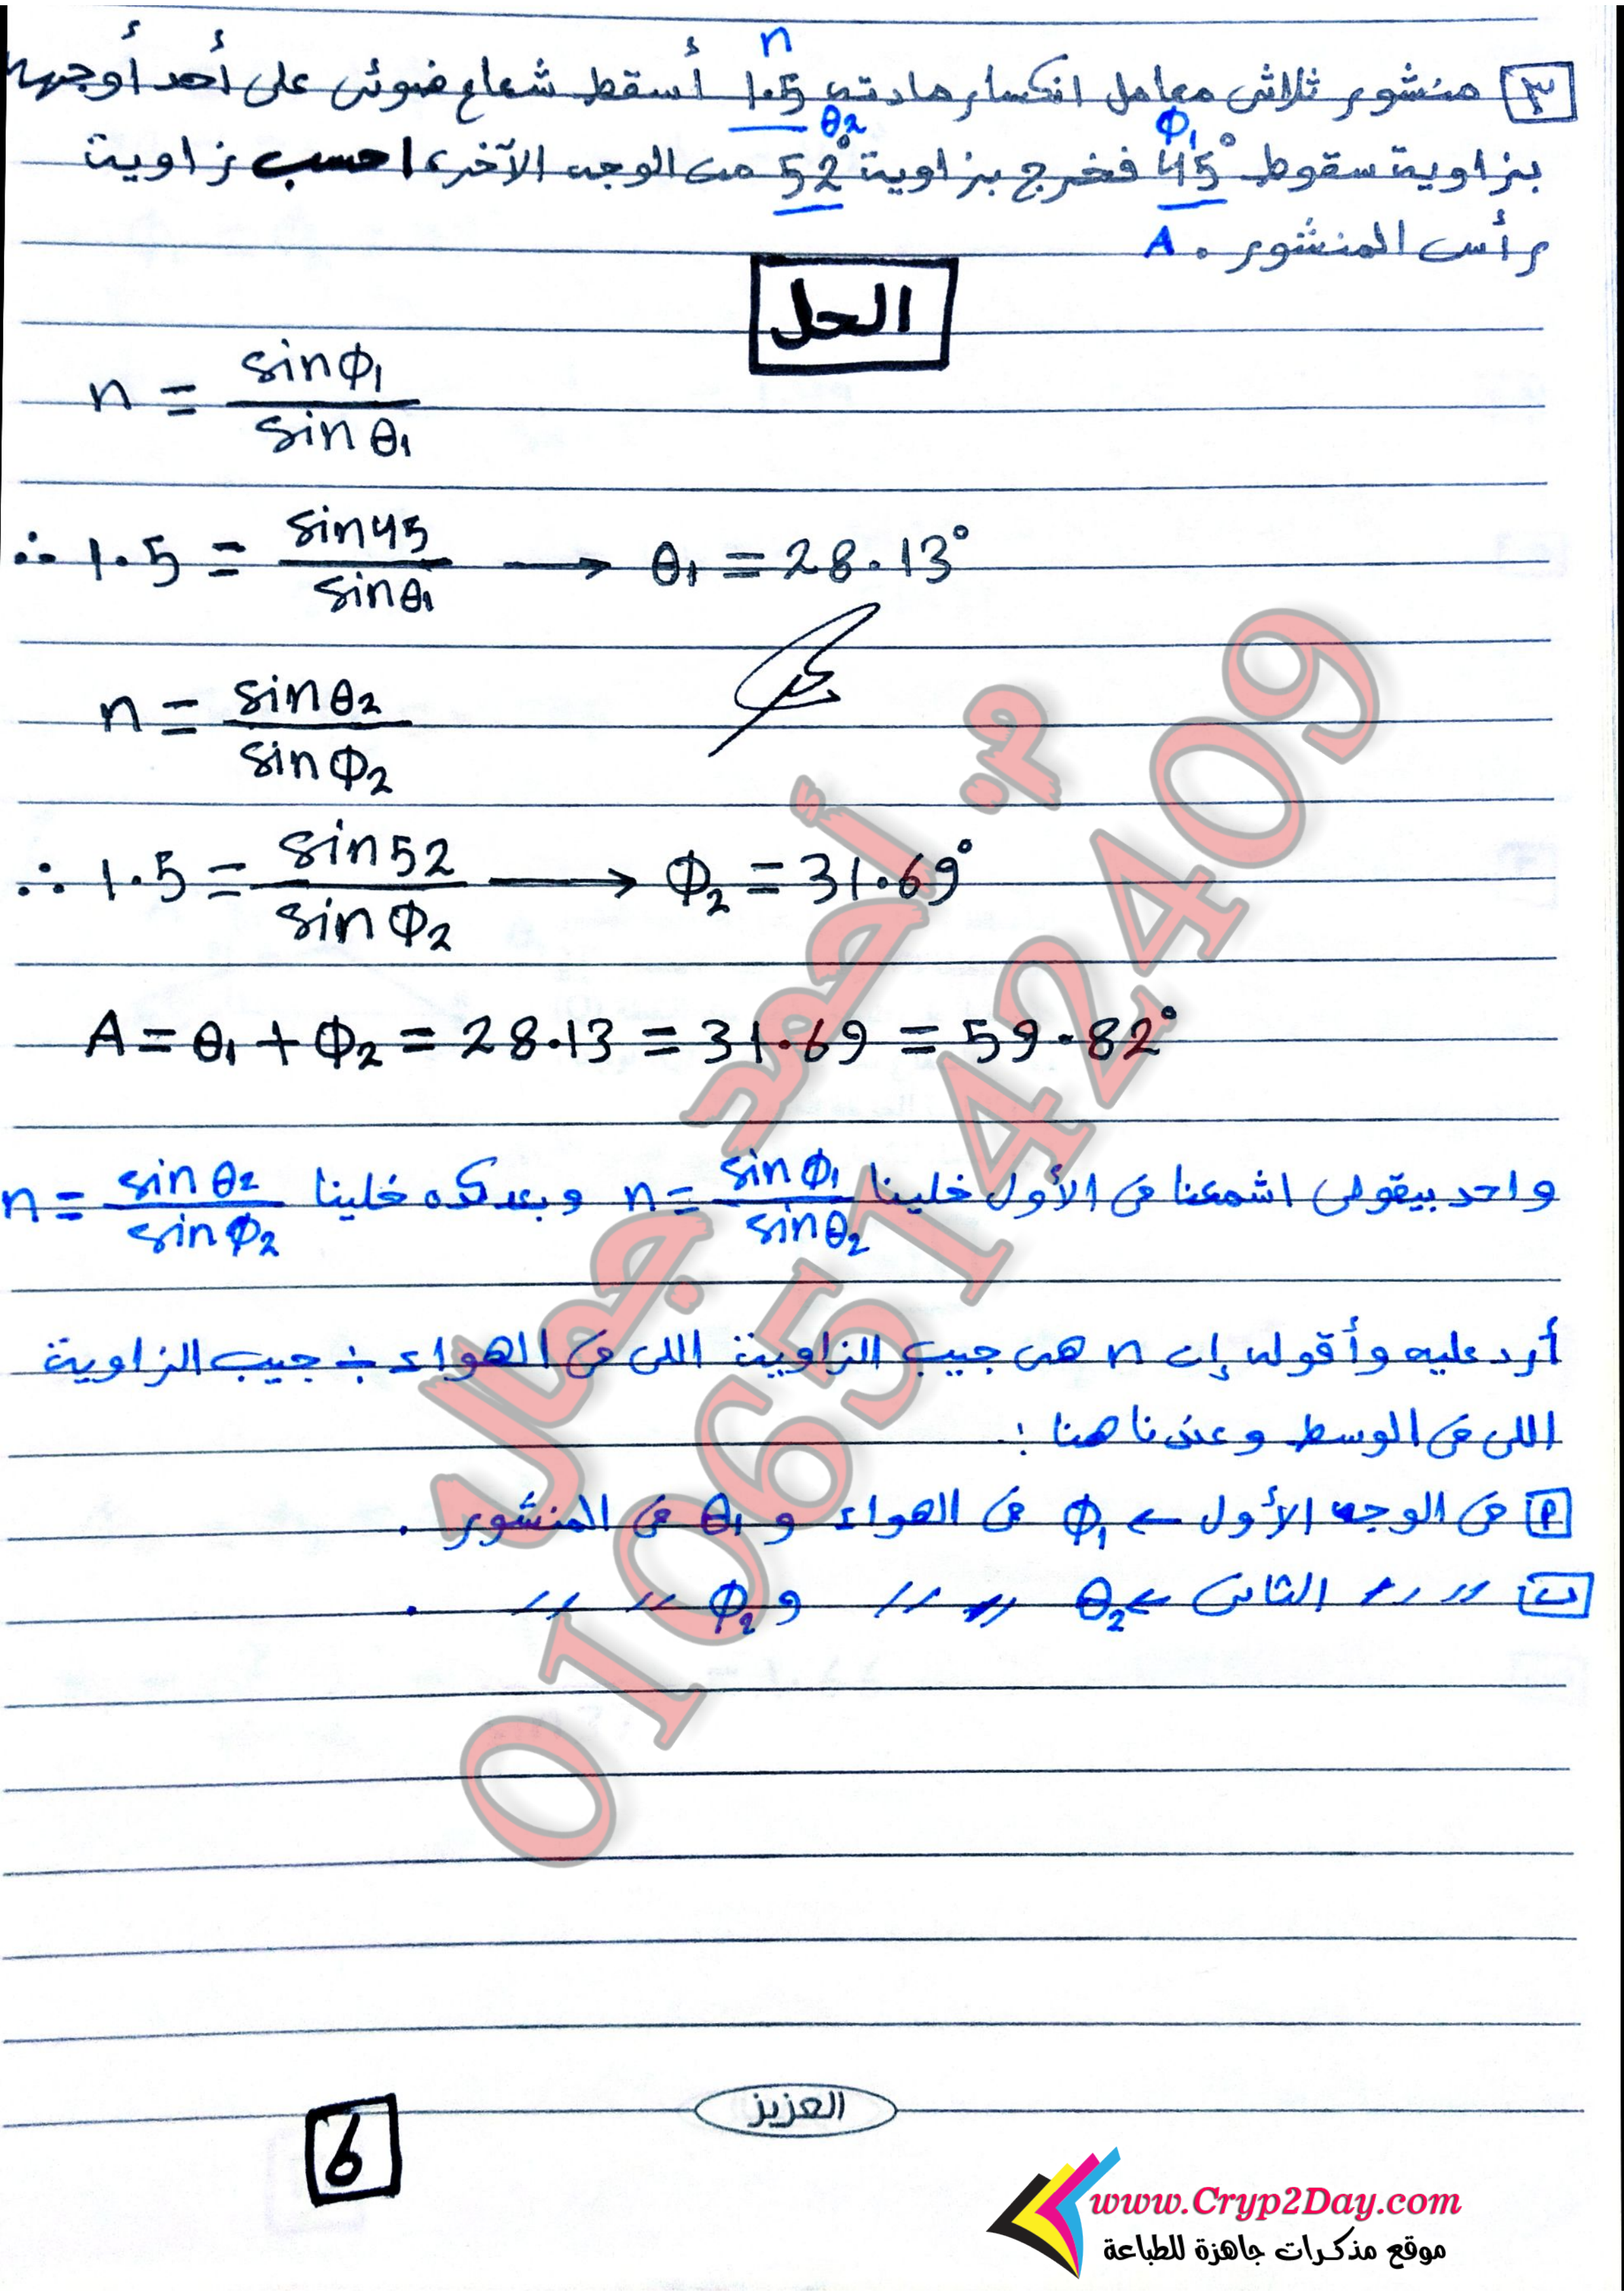 ٣ منشور ثلاثى معامل انكسار مادته 1.5 أسقط شعاع ضوئى على أحد أوجهه
n
بزاوية سقوط 45° فخرج بزاوية 52° من الوجه الآخر، احسب زاوية
ϕ1 θ2
رأس المنشور. A
الحل
n = sinϕ1 / sinθ1
∴ 1.5 = sin45 / sinθ1 → θ1 = 28.13°
n = sinθ2 / sinϕ2
∴ 1.5 = sin52 / sinϕ2 → ϕ2 = 31.69°
A = θ1 + ϕ2 = 28.13 = 31.69 = 59.82°
واحد بيقولى اشمعنا فى الأول خلينا n = sinϕ1 / sinθ2 وبعد كده خلينا n = sinθ2 / sinϕ2
أرد عليه وأقوله إن n هى جيب الزاوية اللى فى الهواء ÷ جيب الزاوية
اللى فى الوسط وعندنا هنا :
أ فى الوجه الأول ← ϕ1 فى الهواء و θ1 فى المنشور .
ب // // الثانى ← θ2 // // و ϕ2 // // .
م. أحمد جمال
01065142409
العزيز
6
www.Cryp2Day.com
موقع مذكرات جاهزة للطباعة